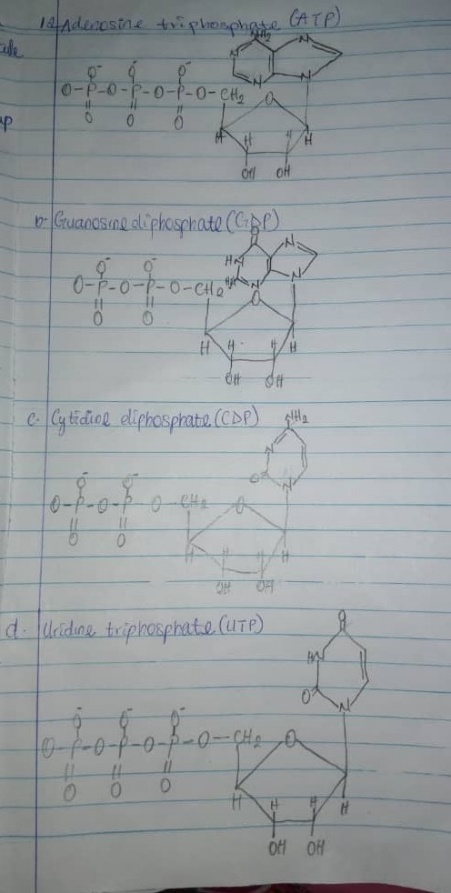 1a. Adenosine triphosphate (ATP)
NH2
N N
N N
O⁻ O⁻ O⁻
O-P-O-P-O-P-O-CH2 O
O O O
H H H H
OH OH
b. Guanosine diphosphate (GDP)
O
HN N
N N
O⁻ O⁻
O-P-O-P-O-CH2 O
O O
H H H H
OH OH
c. Cytidine diphosphate (CDP)
NH2
N
O N
O⁻ O⁻
O-P-O-P O CH2 O
O O
H H H H
OH OH
d. Uridine triphosphate (UTP)
O
HN
O N
O⁻ O⁻ O⁻
O-P-O-P-O-P-O-CH2 O
O O O
H H H H
OH OH